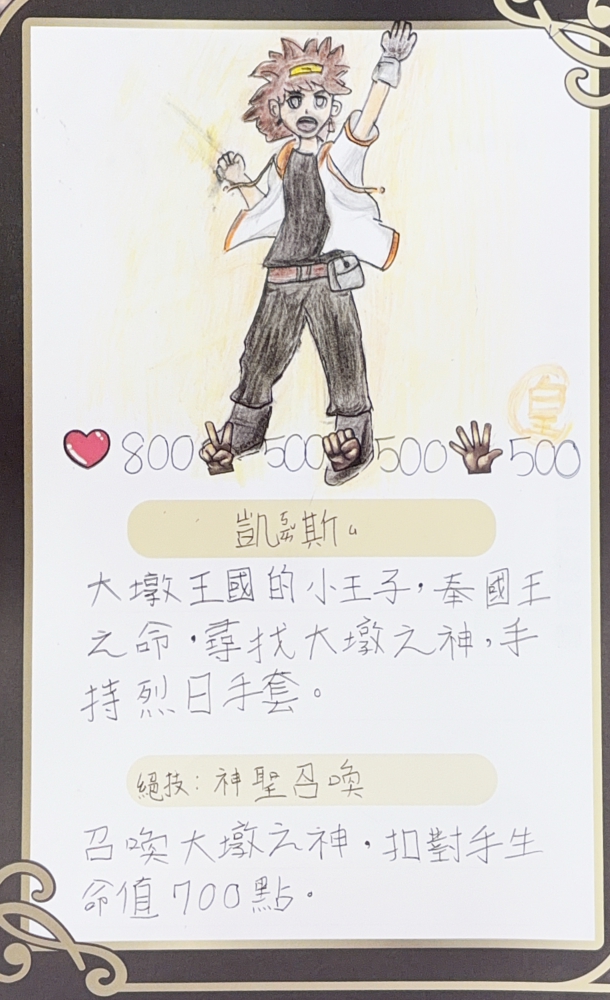 皇
800 500 500 500
凱瑟斯。
大墩王國的小王子，奉國王
之命，尋找大墩之神，手
持烈日手套。
絕技：神聖召喚
召喚大墩之神，扣對手生
命值700點。